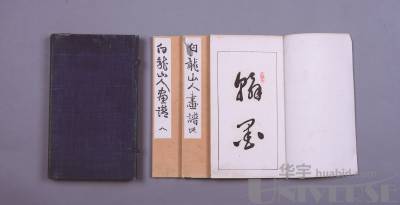 白龍山人畫譜 八
白龍山人畫譜
翰墨
华宇 huabid.com
UNIVERSE